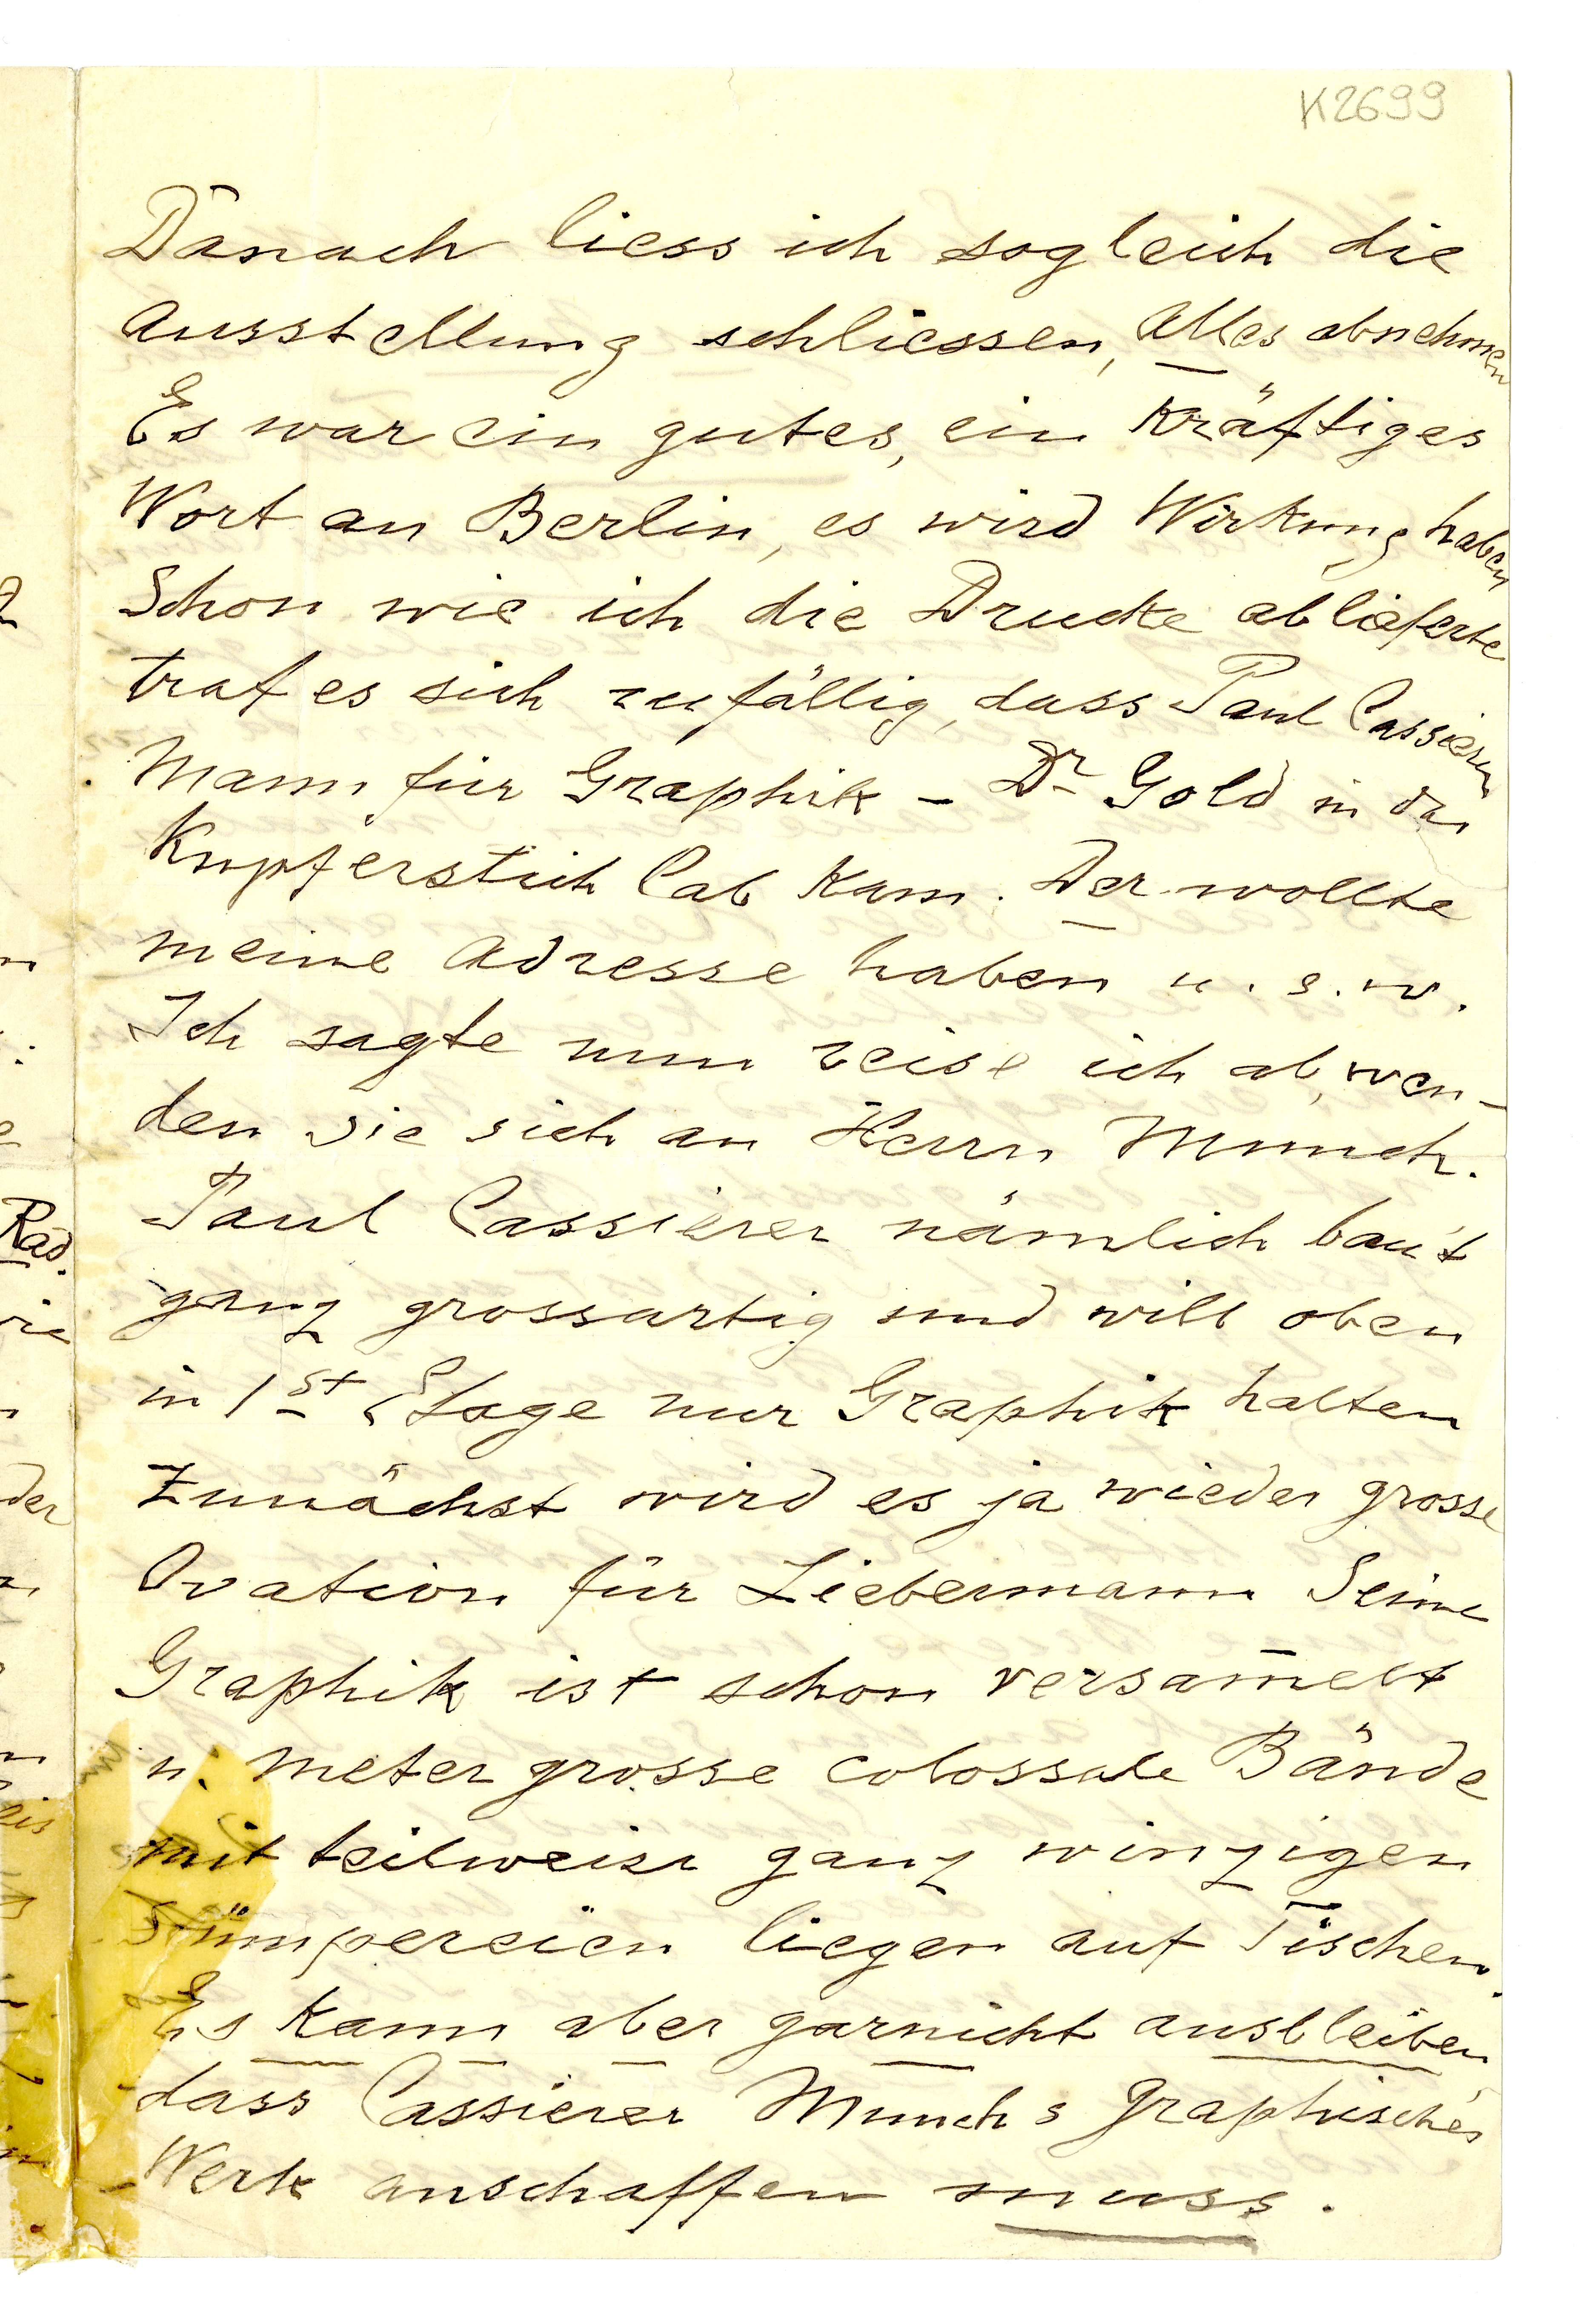 K2699
Danach liess ich sogleich die
Ausstellung schliessen, Alles abnehmen
Es war ein gutes, ein Kräftiges
Wort an Berlin, es wird Wirkung haben
Schon wie ich die Drucke ablieferte
traf es sich zufällig, dass Paul Cassierers
Mann für Graphik – Dr Gold in das
Kupferstich Cab kam. Der wollte
meine Adresse haben u. s. w.
Ich sagte nun reise ich ab, wen-
den sie sich an Herrn Munch.
Paul Cassierer nämlich baut
ganz grossartig und will oben
in 1st Etage nur Graphik halten
Zunächst wird es ja wieder grosse
Ovation für Liebermann Seine
Graphik ist schon versam̄elt
u. meter grosse colossale Bände
mit teilweise ganz winzigen
Stümpereien liegen auf Tischen.
Es kann aber garnicht ausbleiben,
dass Cassierer Munchs graphisches
Werk anschaffen muss.
Rad.
der